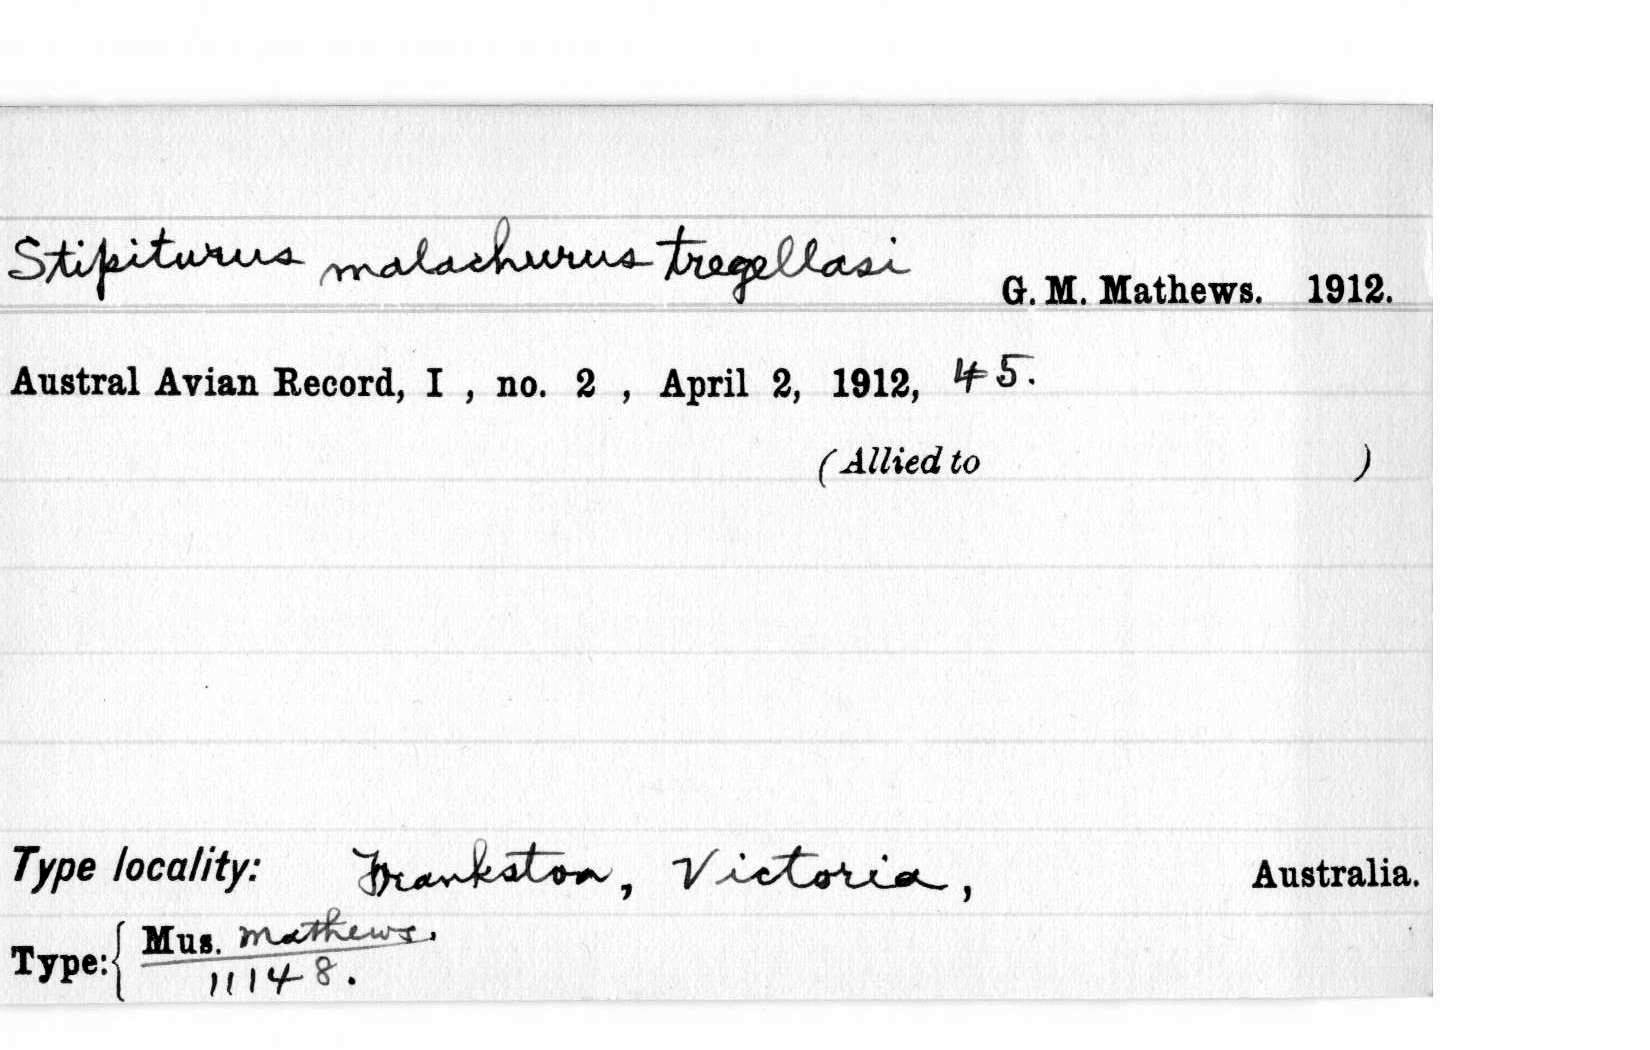 Stipiturus malachurus tregellasi G. M. Mathews. 1912.
Austral Avian Record, I , no. 2 , April 2, 1912, 45.
(Allied to )
Type locality: Frankston, Victoria, Australia.
Type: { Mus. Mathews.
11148.